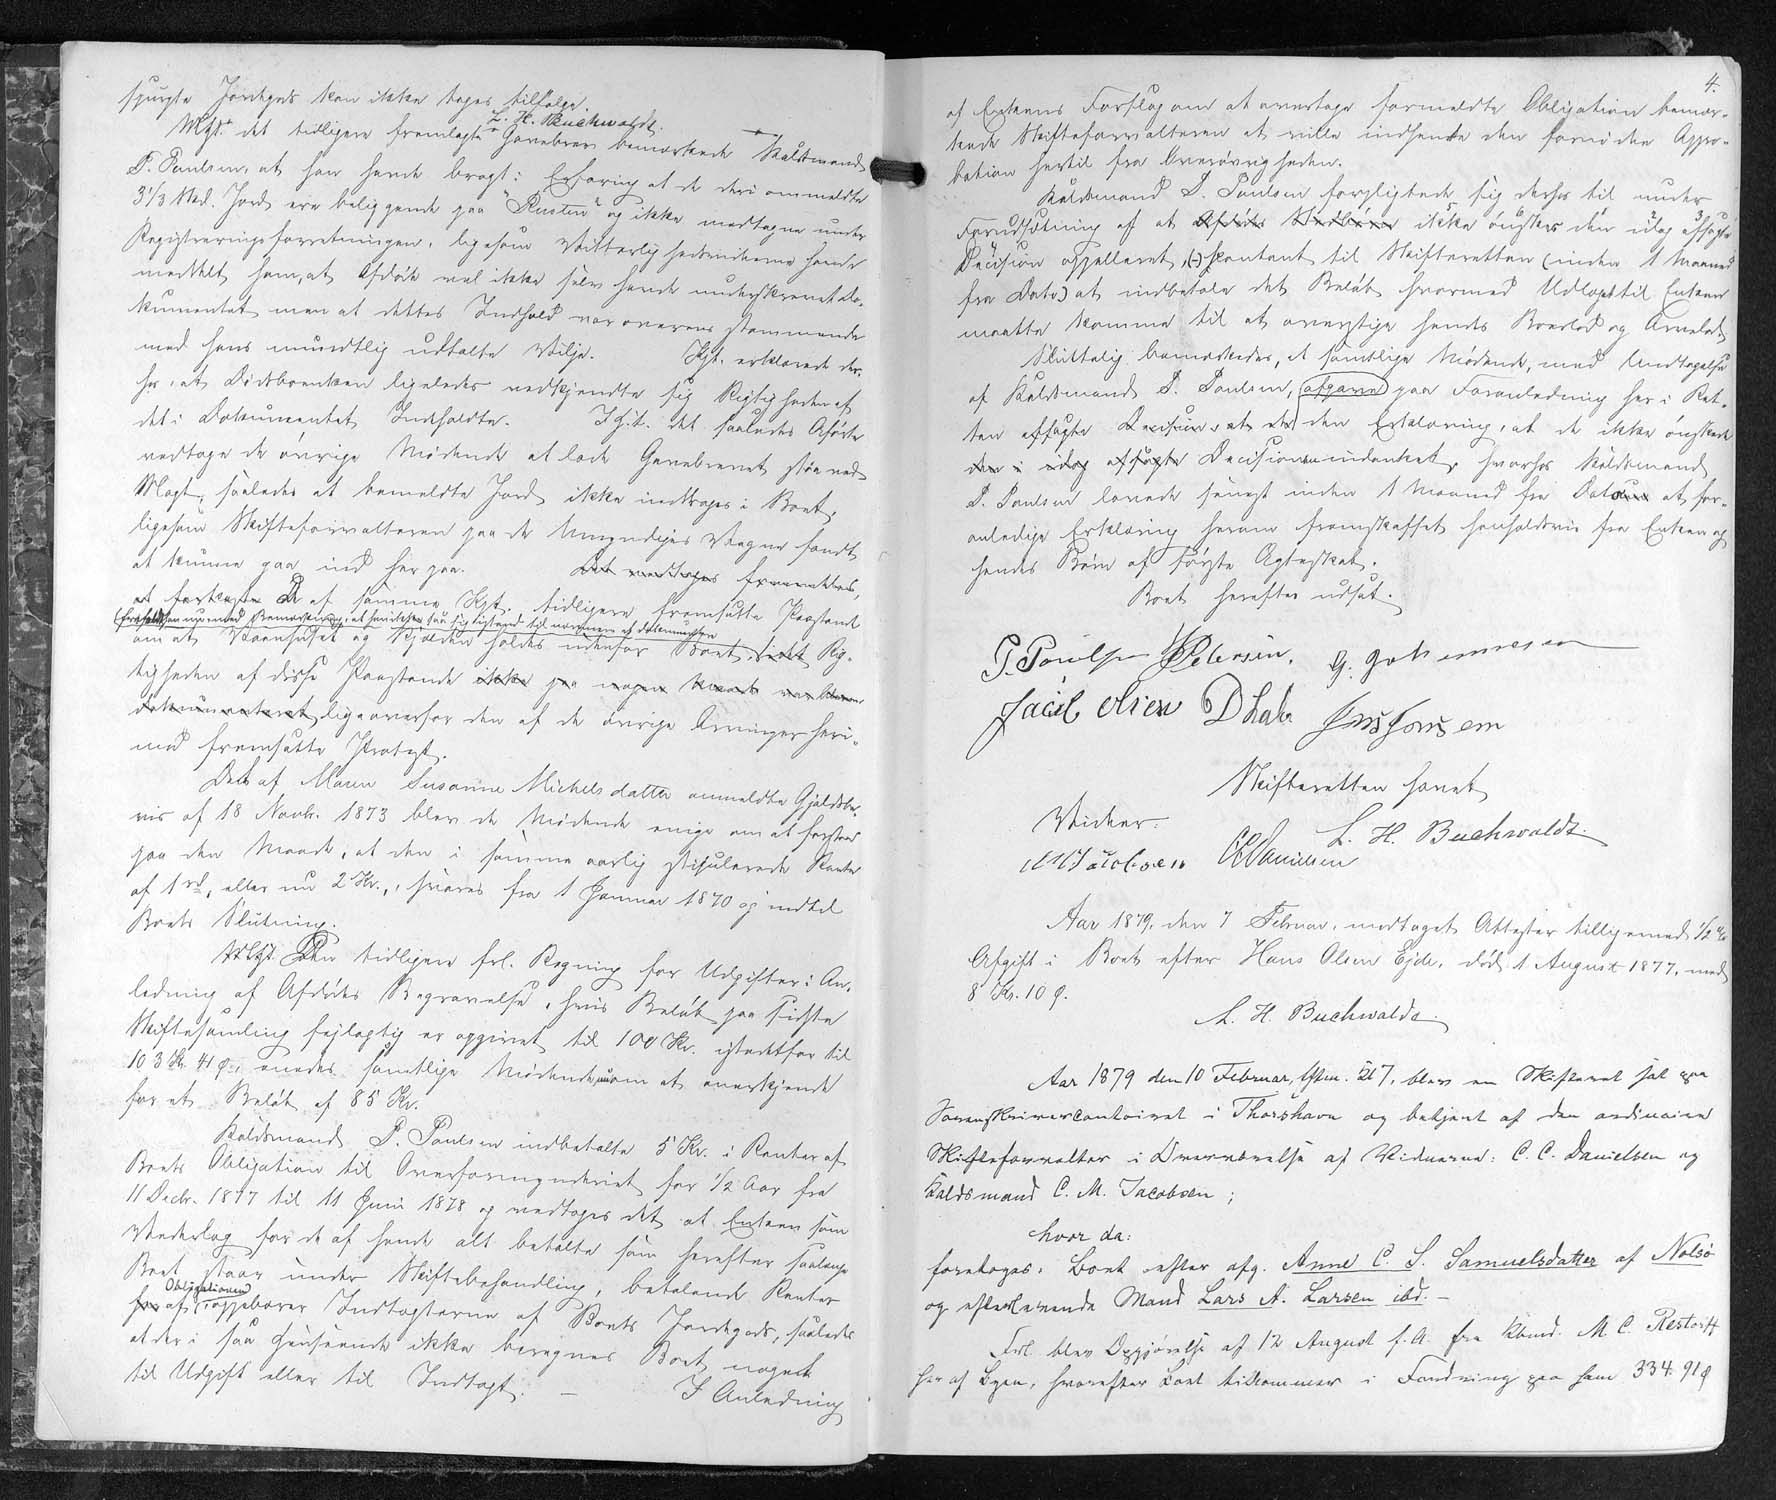 spurgte Jordegods kan ikke tages tilfølge.
L. H. Buchwaldt.
Mht. det tidligere fremlagte Gavebrev bemærkede Kaldsmand
P. Poulsen, at han havde bragt i Erfaring at de deri ommeldte
3 1/3 Mk. Jord ere beliggende paa "Rusten" og ikke medtagne under
Registreringsforretningen, ligesom Vitterlighedsvidnerne havde
meddelt ham, at Afdøde vel ikke selv havde underskrevet Do-
kumentet men at dettes Indhold var overensstemmende
med hans mundtlig udtalte Vilje. Kpt. erklærede der-
hos, at Dødsboenken ligeledes vedkjendte sig Rigtigheden af
det i Dokumentet Indholdte. I Hht. det saaledes Anførte
vedtoge de øvrige Mødende at lade Gavebrevet staa ved
Magt, saaledes at bemeldte Jord ikke inddrages i Boet,
ligesom Skifteforvalteren paa de Umyndiges Vegne fandt
at kunne gaa ind herpaa. Det vedtoges fremdeles,
at De af samme Kpt. tidligere fremsatte Paastand
(frafaldt han nu med Bemærkning, at han ikke saa sig istand til nærmere at dokumentere
om at Kornhuset og Kjælden holdes udenfor Boet, idet Rig-
tigheden af disse Paastande ikke paa nogen Maade var bleven
dokumenteret ligeoverfor den af de øvrige Arvinger heri-
mod fremsatte Protest.
Det af Maren Susanne Michelsdatter anmeldte Gjældsbe-
vis af 18 Novbr. 1873 bleve de Mødende enige om at forstaa
paa den Maade, at den i samme aarlig stipulerede Rente
af 1 rd, eller nu 2 Kr., svares fra 1 Januar 1870 og indtil
Boets Slutning.
Mht. Den tidligere frl. Regning for Udgifter i An-
ledning af Afdødes Begravelse, hvis Beløb paa sidste
Skiftesamling fejlagtig er opgivet til 100 Kr. istedetfor til
103 Kr 41 Ø., enedes samtlige Mødende om at anerkjende
for et Beløb af 85 Kr.
Kaldsmand P. Poulsen indbetalte 5 Kr. i Renter af
Boets Obligation til Overformynderiet for 1/2 Aar fra
11 Decbr. 1877 til 11 Juni 1878 og vedtoges det at Enken som
Vederlag for de af hende alt betalte som herefter saalænge
Boet staar under Skiftebehandling, betalende Renter
Obligationen
for af oppebærer Indtægterne af Boets Jordegods, saaledes
at der i saa Henseende ikke beregnes Boet noget
til Udgift eller til Indtægt. — I Anledning
4.
af Enkens Forslag om at overtage formeldte Obligation bemær-
kede Skifteforvalteren at ville indhente den fornødne Appro-
bation hertil fra Overøvrigheden.
Kaldsmand P. Poulsen forpligtede sig derhos til under
Forudsætning af at Afdødes Stedbørn ikke ønskes den idag afsagte
Decision appelleret, (-) kontant til Skifteretten (inden 1 Maaned
fra Dato) at indbetale det Beløb hvormed Udlægget til Enken
maatte komme til at overstige hendes Boeslod og Arvelod.
Sluttelig bemærkedes, at samtlige Mødende, med Undtagelse
af Kaldsmand P. Poulsen, afgave paa Foranledning her i Ret-
ten afsagte Decision, at de den Erklæring, at de ikke ønskede
den i idag afsagte Decision indanket, hvorhos Kaldsmand
P. Poulsen lovede senest inden 1 Maaned fra Dato at for-
anledige Erklæring herom fremskaffet henholdsvis fra Enken og
hendes Børn af første Ægteskab.
Boet herefter udsat.
P. Poulsen JPetersen. G. Johannesen
Jacob Olsen D Lah Jens Joensen
Skifteretten hævet
L. H. Buchwaldt.
Vidner:
CMJacobsen CCDanielsen
Aar 1879, den 7 Februar, modtaget Attester tilligemed 1/2 %
Afgift i Boet efter Hans Olsen Ejde, død 1 August 1877, med
8 Kr. 10 Ø.
L. H. Buchwaldt.
Aar 1879 den 10 Februar, Eftm. 5, blev en Skifteret sat paa
Sorenskrivercontoiret i Thorshavn og betjent af den ordinaire
Skifteforvalter i Overværelse af Vidnerne: C. C. Danielsen og
Kaldsmand C. M. Jacobsen;
hvor da:
foretoges: Boet efter afg. Anne C. S. Samuelsdatter af Nolsø
og efterlevende Mand Lars A. Larsen ibd. —
Frl. blev Opgjørelse af 12 August f. A. fra Kbmd. M. C. Restorff
her af Byen, hvorefter Boet tilkommer i Fordring paa ham 334. 91 Ø